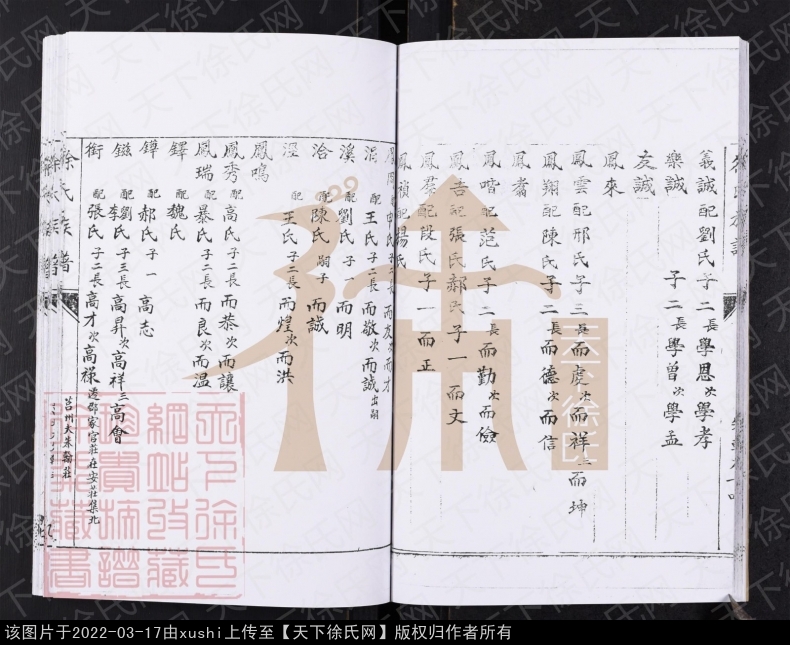 徐氏族譜
義誠 配劉氏 子二 長學恩 次學孝
樂誠 子二 長學曾 次學孟
友誠
鳳來
鳳雲 配邢氏 子三 長而虔 次而祥 三而坤
鳳翔 配陳氏 子二 長而德 次而信
鳳翥
鳳喈 配范氏 子二 長而勤 次而儉
鳳吉 配張氏郝氏 子一 而文
鳳羣 配段氏 子一 而正
鳳 配楊氏
涓 配王氏 子二 長而敬 次而誠出嗣
溪 配劉氏 子一 而明
洽 配陳氏 嗣子 而誠
涇 配王氏 子二 長而煌 次而洪
鳳鳴
鳳秀 配高氏 子二 長而恭 次而讓
鳳瑞 配綦氏 子二 長而良 次而溫
鐸 配魏氏
鐏 配郝氏 子一 高志
鎡 配劉氏李氏 子三 長高昇 次高祥 三高會
銜 配張氏 子二 長高才 次高祿 遷鄒家官莊在安莊集北
徐氏族譜
莒州大朱翰莊
天下徐氏網站收藏珍貴族譜典藏書
天下徐氏
天下徐氏网
该图片于2022-03-17由xushi上传至【天下徐氏网】版权归作者所有